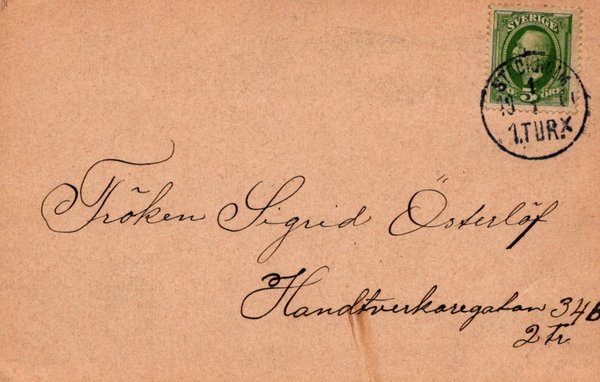 SVERIGE
5 ÖRE
STOCKHOLM
1
1.TUR.X
Fröken Sigrid Österlöf
Handtverkaregatan 34B
2 Tr